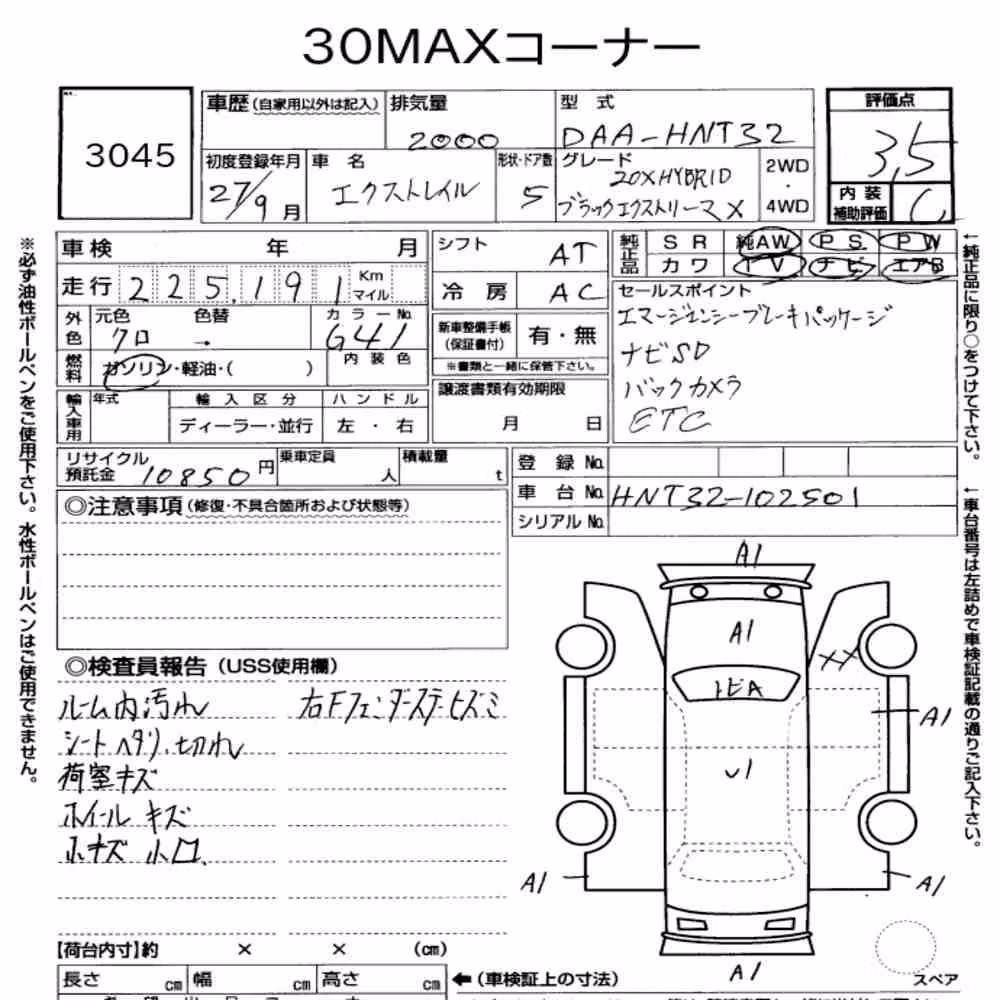 30MAXコーナー
3045
車歴(自家用以外は記入)
排気量
2000
型 式
DAA-HNT32
評価点
3,5
内装
補助評価
C
初度登録年月
27/9月
車 名
エクストレイル
形状・ドア数
5
グレード
20XHYBRID
ブラックエクストリーマX
2WD
・
4WD
車検 年 月
シフト
AT
純正品
SR 純AW PS PW
カワ TV ナビ エアB
走行 225,191 Km
マイル
冷房 AC
外色
元色 色替
クロ →
カラーNo.
G41
新車整備手帳
(保証書付)
有・無
※書類と一緒に保管下さい。
燃料
ガソリン・軽油・( )
内装色
セールスポイント
エマージェンシーブレーキパッケージ
ナビSD
バックカメラ
ETC
輸入車用
年式
輸入区分
ディーラー・並行
ハンドル
左・右
譲渡書類有効期限
月 日
リサイクル
預託金 10850円
乗車定員
人
積載量
t
登録No.
車台No. HNT32-102501
シリアルNo.
◎注意事項(修復・不具合箇所および状態等)
◎検査員報告(USS使用欄)
ルーム内汚れ
右Fフェンダーステーヒズミ
シートヘタリ、切れ
荷室キズ
ホイールキズ
小キズ 小凹
A1
A1
トビA
XX
A1
U1
A1
A1
A1
スペア
【荷台内寸】約 × × (cm)
長さ cm 幅 cm 高さ cm
←(車検証上の寸法)
※必ず油性ボールペンをご使用下さい。水性ボールペンはご使用できません。
←純正品に限り○をつけて下さい。
←車台番号は左詰めで車検証記載の通りご記入下さい。